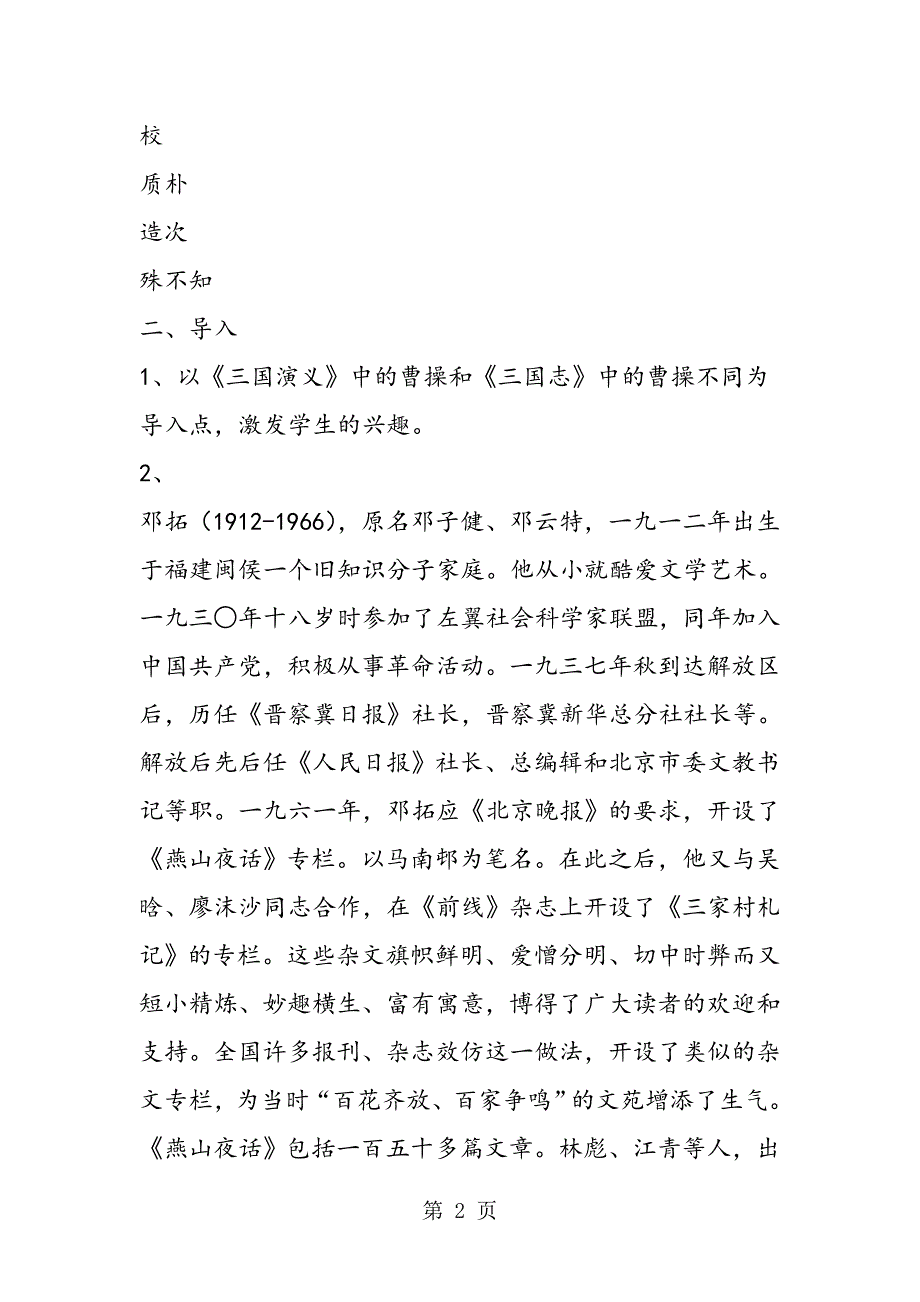 校
质朴
造次
殊不知
二、导入
1、以《三国演义》中的曹操和《三国志》中的曹操不同为
导入点，激发学生的兴趣。
2、
邓拓（1912-1966），原名邓子健、邓云特，一九一二年出生
于福建闽侯一个旧知识分子家庭。他从小就酷爱文学艺术。
一九三〇年十八岁时参加了左翼社会科学家联盟，同年加入
中国共产党，积极从事革命活动。一九三七年秋到达解放区
后，历任《晋察冀日报》社长，晋察冀新华总分社社长等。
解放后先后任《人民日报》社长、总编辑和北京市委文教书
记等职。一九六一年，邓拓应《北京晚报》的要求，开设了
《燕山夜话》专栏。以马南邨为笔名。在此之后，他又与吴
晗、廖沫沙同志合作，在《前线》杂志上开设了《三家村札
记》的专栏。这些杂文旗帜鲜明、爱憎分明、切中时弊而又
短小精炼、妙趣横生、富有寓意，博得了广大读者的欢迎和
支持。全国许多报刊、杂志效仿这一做法，开设了类似的杂
文专栏，为当时“百花齐放、百家争鸣”的文苑增添了生气。
《燕山夜话》包括一百五十多篇文章。林彪、江青等人，出
第 2 页